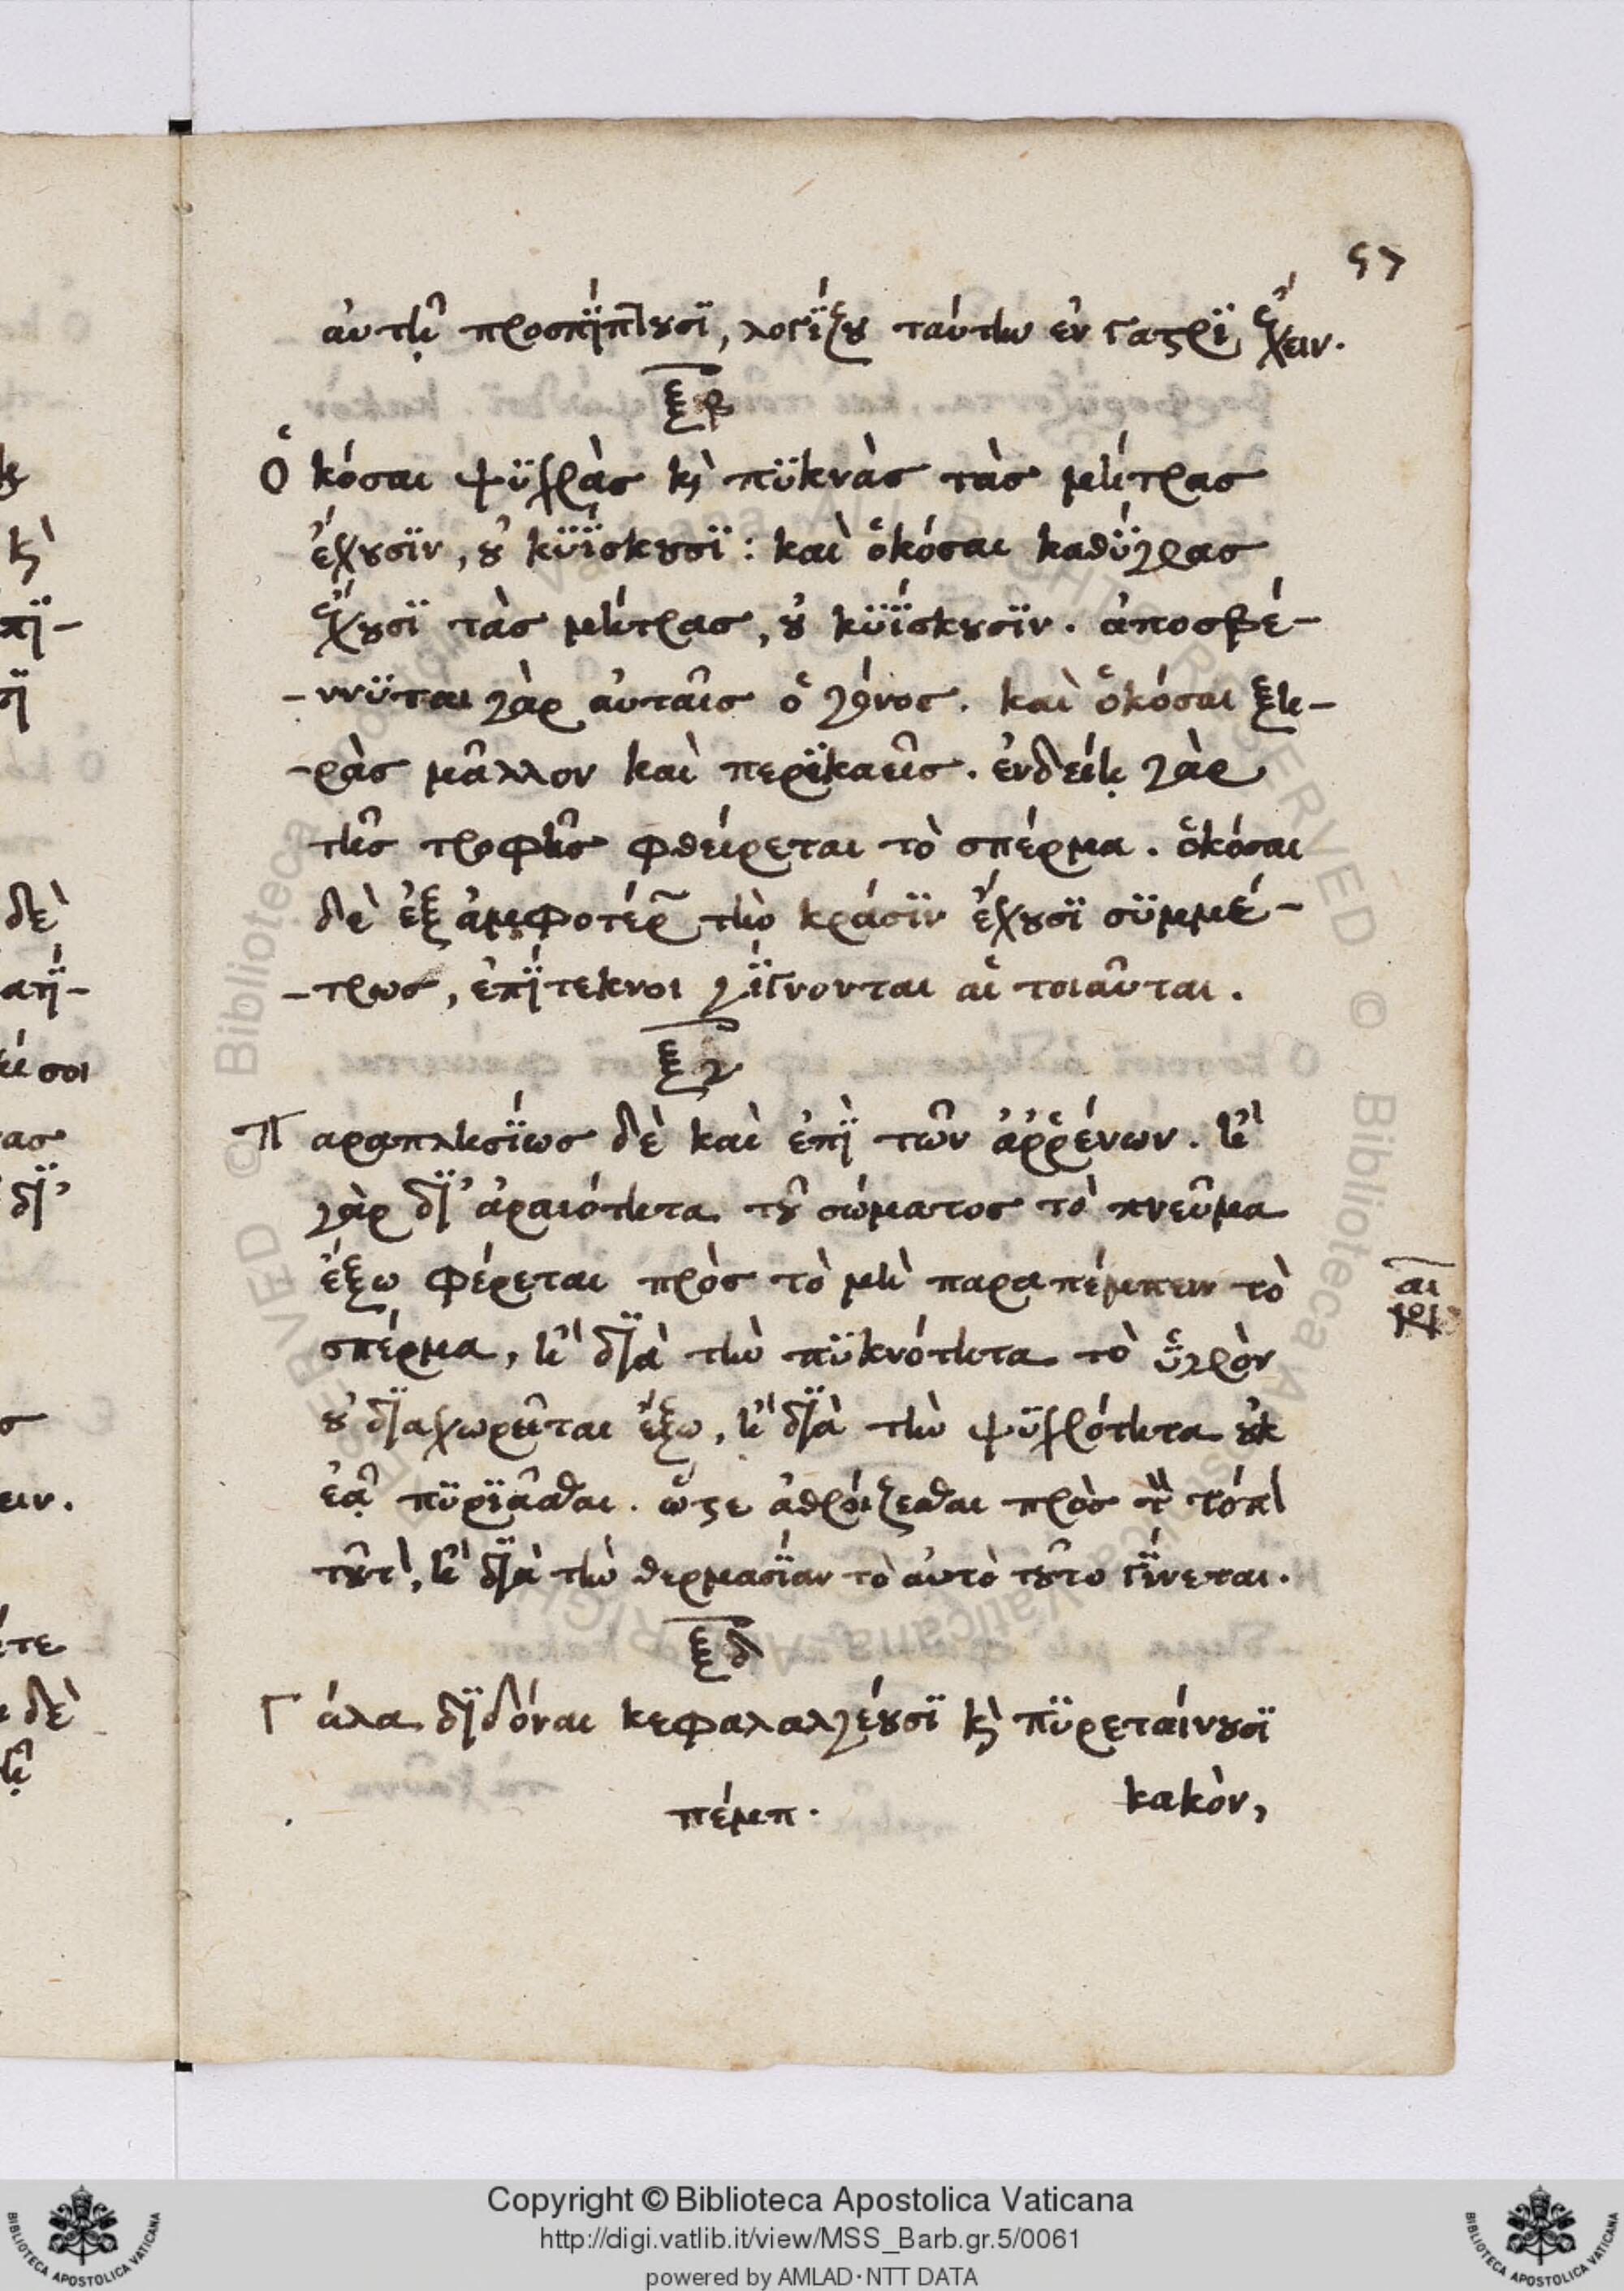 57
αὐτῇ προσπίπτουσι, λογίζου ταύτην ἐν γαστρὶ ἔχειν.
ξβ
Ὁκόσαι ψυχρὰς κỳ πυκνὰς τὰς μήτρας
ἔχουσιν, οὐ κυΐσκουσι: καὶ ὁκόσαι καθύγρας
ἔχουσι τὰς μήτρας, οὐ κυΐσκουσιν. ἀποσβέ-
-ννυται γὰρ αὐταῖς ὁ γόνος. καὶ ὁκόσαι ξη-
-ρὰς μᾶλλον καὶ περικαεῖς. ἐνδείῃ γὰρ
τῆς τροφῆς φθείρεται τὸ σπέρμα. ὁκόσαι
δὲ ἐξ ἀμφοτέρ~ τὴν κράσιν ἔχουσι συμμέ-
-τρως, ἐπίτεκνοι γίγνονται αἱ τοιαῦται.
ξγ
Παραπλησίως δὲ καὶ ἐπὶ τῶν ἀῤῥένων. ἢ
γὰρ δι' ἀραιότητα τοῦ σώματος τὸ πνεῦμα
ἔξω φέρεται πρὸς τὸ μὴ παραπέμπειν τὸ
σπέρμα, ἢ διὰ τὴν πυκνότητα τὸ ὑγρὸν
οὐ διαχωρεῖται ἔξω, ἢ διὰ τὴν ψυχρότητα οὐκ
ἐᾷ πυριᾶσθαι. ὥστε ἀθροίζεσθαι πρὸς τὸν τόπ
τοῦτ, ἢ διὰ τὴν θερμασίαν τὸ αὐτὸ τοῦτο γίνεται.
ξδ
Γάλα διδόναι κεφαλαλγέουσι κỳ πυρεταίνουσι
κακὸν,
πέμπ.
Copyright © Biblioteca Apostolica Vaticana
http://digi.vatlib.it/view/MSS_Barb.gr.5/0061
powered by AMLAD·NTT DATA